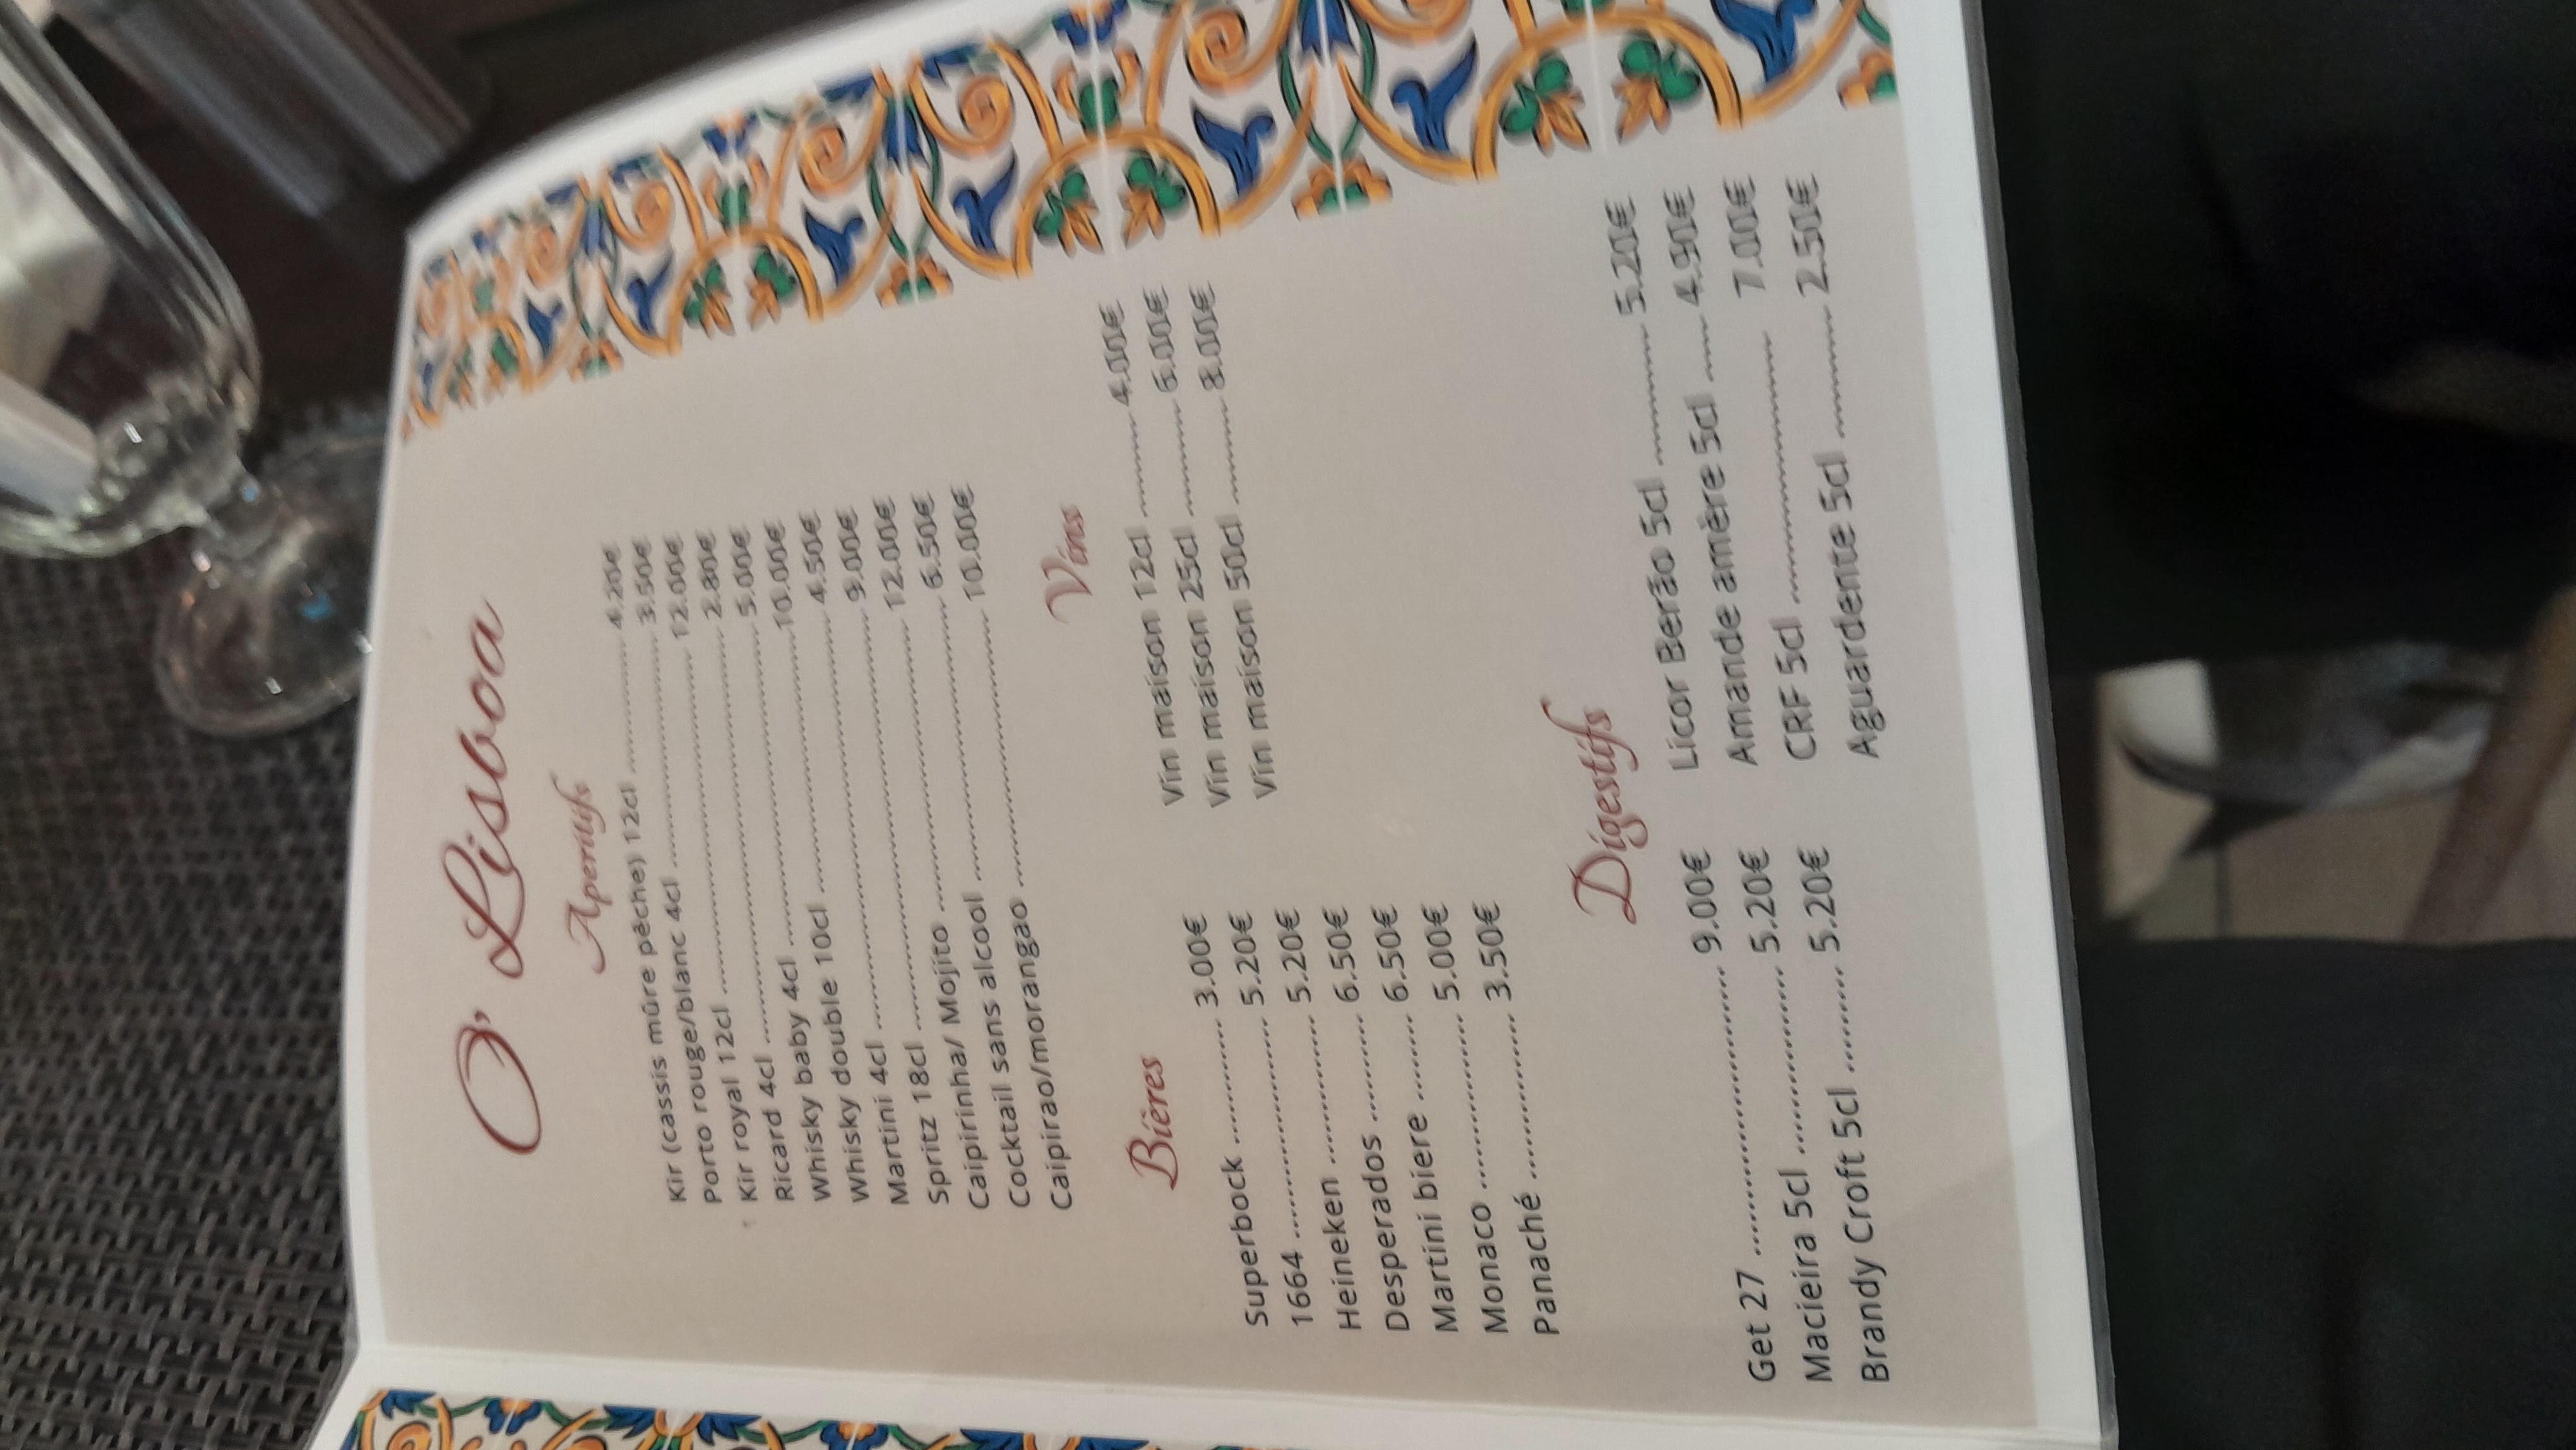 O' Lisboa
Aperitifs
Kir (cassis mûre pêche) 12cl .......... 4.20€
Porto rouge/blanc 4cl .......... 3.50€
Kir royal 12cl .......... 12.00€
Ricard 4cl .......... 2.80€
Whisky baby 4cl .......... 5.00€
Whisky double 10cl .......... 10.00€
Martini 4cl .......... 4.50€
Spritz 18cl .......... 9.00€
Caipirinha/ Mojito .......... 12.00€
Cocktail sans alcool .......... 6.50€
Caipirao/morangao .......... 10.00€
Bières
Superbock .......... 3.00€
1664 .......... 5.20€
Heineken .......... 5.20€
Desperados .......... 6.50€
Martini biere .......... 6.50€
Monaco .......... 5.00€
Panaché .......... 3.50€
Vins
Vin maison 12cl .......... 4.00€
Vin maison 25cl .......... 6.00€
Vin maison 50cl .......... 8.00€
Digestifs
Get 27 .......... 9.00€
Macieira 5cl .......... 5.20€
Brandy Croft 5cl .......... 5.20€
Licor Berão 5cl .......... 5.20€
Amande amère 5cl .......... 4.90€
CRF 5cl .......... 7.00€
Aguardente 5cl .......... 2.50€